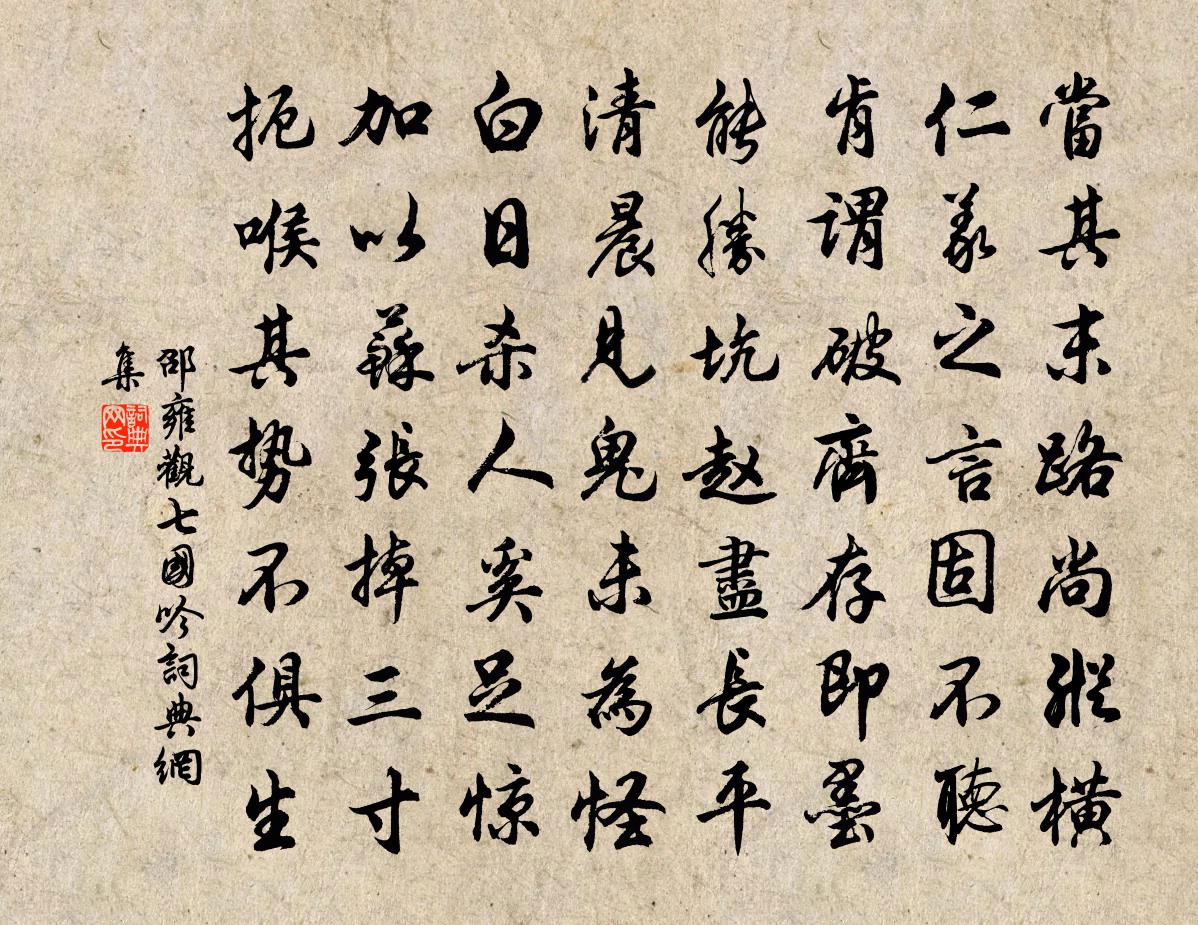 當其末路尚縱橫
仁義之言固不聽
肯謂破齊存即墨
能勝坑赵盡長平
清晨見鬼未為怪
白日杀人奚足惊
加以蘇張掉三寸
扼喉其势不俱生
邵雍觀七國吟詞典網
集
詞典
网印